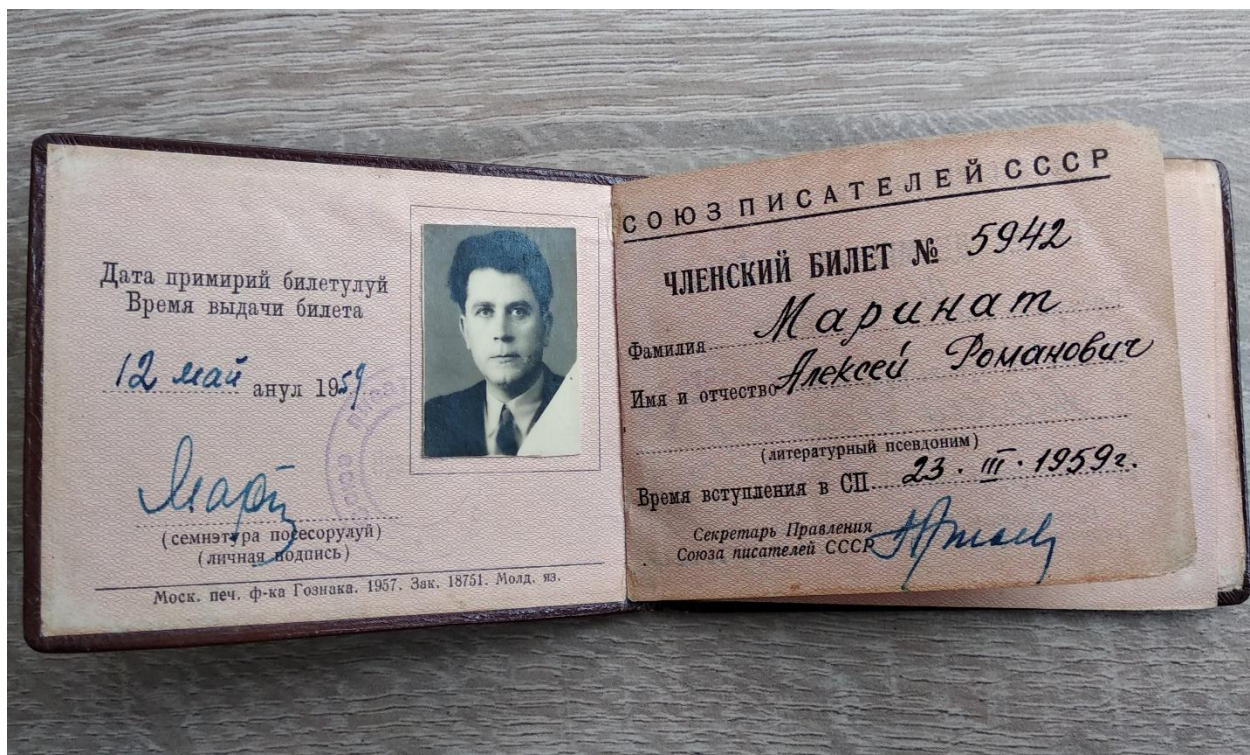 Дата примирий билетулуй
Время выдачи билета
12 май анул 1959
(семнэтура посесорулуй)
(личная подпись)
Моск. печ. ф-ка Гознака. 1957. Зак. 18751. Молд. яз.
СОЮЗ ПИСАТЕЛЕЙ СССР
ЧЛЕНСКИЙ БИЛЕТ № 5942
Фамилия Маринат
Имя и отчество Алексей Романович
(литературный псевдоним)
Время вступления в СП 23. III. 1959г.
Секретарь Правления
Союза писателей СССР